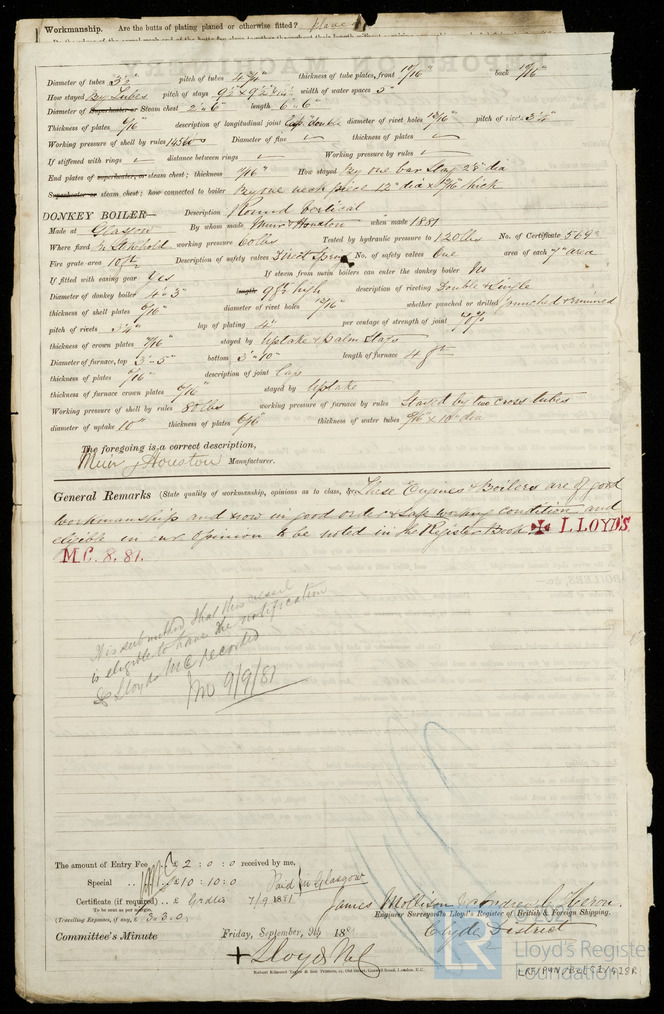 Workmanship. Are the butts of plating planed or otherwise fitted? planed
Diameter of tubes 3½" pitch of tubes 4¾" thickness of tube plates, front 11/16" back 11/16"
How stayed By Tubes pitch of stays width of water spaces 5"
Diameter of Superheater or Steam chest 2' 6" length 6' 6"
Thickness of plates 7/16" description of longitudinal joint Lap double diameter of rivet holes 13/16" pitch of rivets 3¼"
Working pressure of shell by rules Diameter of flue thickness of plates
If stiffened with rings distance between rings Working pressure by rules
End plates of superheater, or steam chest; thickness How stayed By one bar Stay dia
Superheater or steam chest; how connected to boiler By one neck piece 12" dia x thick
DONKEY BOILER— Description Round Vertical
Made at Glasgow By whom made Muir & Houston when made 1881
Where fixed In Stokehold working pressure 60lbs Tested by hydraulic pressure to 120lbs No. of Certificate 569
Fire grate area 10ft Description of safety valves Direct Spring No. of safety valves One area of each 7" area
If fitted with easing gear Yes If steam from main boilers can enter the donkey boiler No
Diameter of donkey boiler 4' 3" length 9ft high description of riveting Double & Single
thickness of shell plates 7/16" diameter of rivet holes 13/16" whether punched or drilled punched & rimed
pitch of rivets 3¼" lap of plating 4" per centage of strength of joint 70%
thickness of crown plates stayed by Uptake & Palm Stays
Diameter of furnace, top 3' 5" bottom 3' 10" length of furnace 4 ft
thickness of plates description of joint Lap
thickness of furnace crown plates stayed by Uptake
Working pressure of shell by rules 80lbs working pressure of furnace by rules Stayed by two cross tubes
diameter of uptake 10" thickness of plates 6/16" thickness of water tubes x 10" dia
The foregoing is a correct description,
Muir & Houston Manufacturer.
General Remarks (State quality of workmanship, opinions as to class, &c. These Engines & Boilers are of good
workmanship and now in good order & safe working condition and
eligible in our Opinion to be noted in the Register Book ✠ LLOYD'S
M.C. 8. 81.
It is submitted that this vessel
is eligible to have the notification
✠ Lloyds MC recorded
9/9/81
The amount of Entry Fee £ 2 : 0 : 0 received by me,
Special .. £ 10 : 10 : 0 Paid in Glasgow
Certificate (if required) .. £ Gratis 7/9 1881.
To be sent as per margin.
(Travelling Expenses, if any, £ 3.3.0)
James Mollison & Andrew C. Heron.
Engineer Surveyors to Lloyd's Register of British & Foreign Shipping.
Clyde District
Committee's Minute Friday, September, 9th 188
+ Lloyds MC
© 202
LR
Lloyd's Register
Foundation